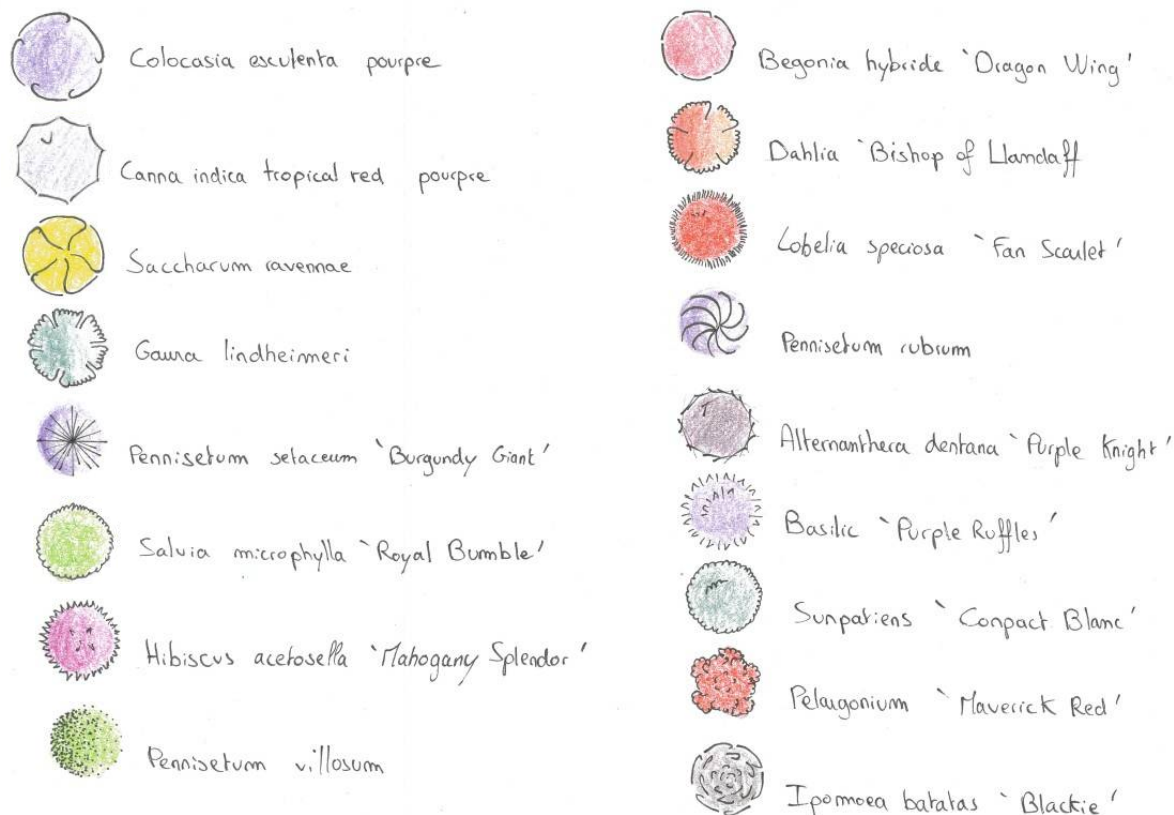 Colocasia esculenta pourpre
Canna indica tropical red pourpre
Saccharum ravennae
Gaura lindheimeri
Pennisetum setaceum `Burgundy Giant'
Salvia microphylla `Royal Bumble'
Hibiscus acetosella `Mahogany Splendor'
Pennisetum villosum
Begonia hybride `Dragon Wing'
Dahlia `Bishop of Llandaff
Lobelia speciosa `Fan Scarlet'
Pennisetum rubrum
Alternanthera dentana `Purple Knight'
Basilic `Purple Ruffles'
Sunpatiens `Conpact Blanc'
Pelargonium `Maverick Red'
Ipomoea batatas `Blackie'